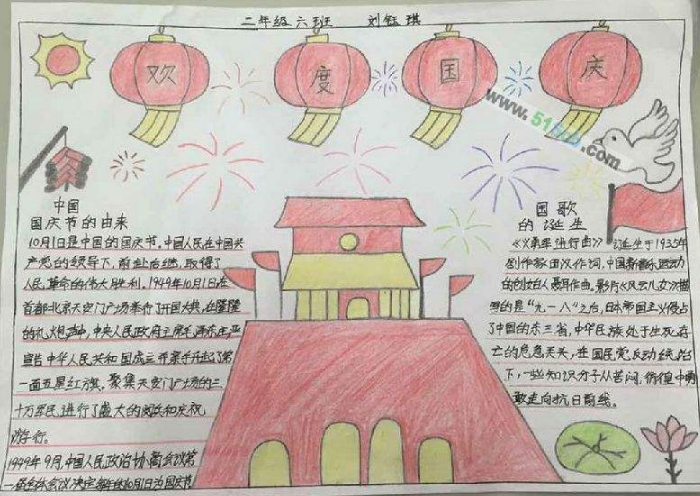 二年级六班 刘钰琪
欢度国庆
www.51
.com
中国
国庆节的由来
10月1日是中国的国庆节,中国人民在中国共
产党的领导下,前赴后继,取得了
人民革命的伟大胜利,1949年10月1日在
首都北京天安门广场举行了开国大典,在隆隆
的礼炮声中,中央人民政府主席毛泽东庄严
宣告中华人民共和国成立并亲手升起了第
一面五星红旗,聚集天安门广场的三
十万军民进行了盛大的阅兵和庆祝
游行。
1949年9月,中国人民政治协商会议第
一届全体会议决定每年的10月1日为国庆节
国歌
的诞生
《义勇军进行曲》诞生于1935年
剧作家田汉作词,中国新音乐运动
的创始人聂耳作曲。影片《风云儿女》描
的是"九一八"之后,日本帝国主义侵占
了中国的东三省,中华民族处于生死存
亡的危急关头,在国民党反动统治
下,一些知识分子从苦闷、彷徨中勇
敢走向抗日前线。